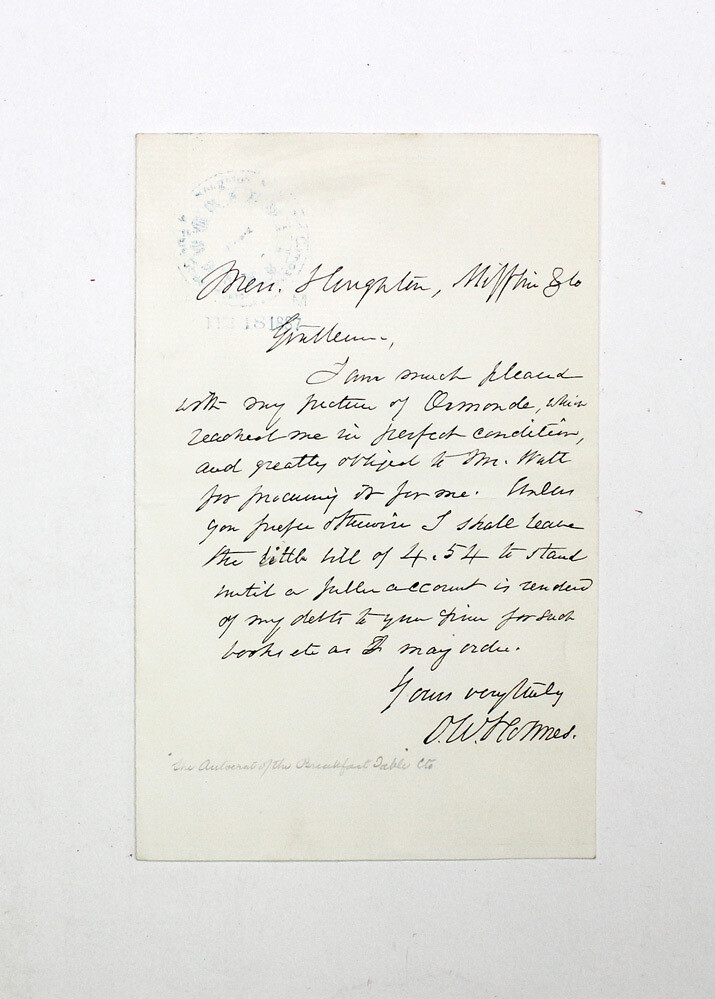 FEB 18 1887
Messrs. Houghton, Mifflin & Co
Gentlemen,
I am much pleased
with my picture of Ormonde, which
reached me in perfect condition,
and greatly obliged to Mr. Watt
for procuring it for me. Unless
you prefer otherwise I shall leave
the little bill of 4.54 to stand
until a fuller account is rendered
of my debts to your firm for such
books etc as I may order.
Yours very truly
O. W. Holmes.
"The Autocrat of the Breakfast Table" etc